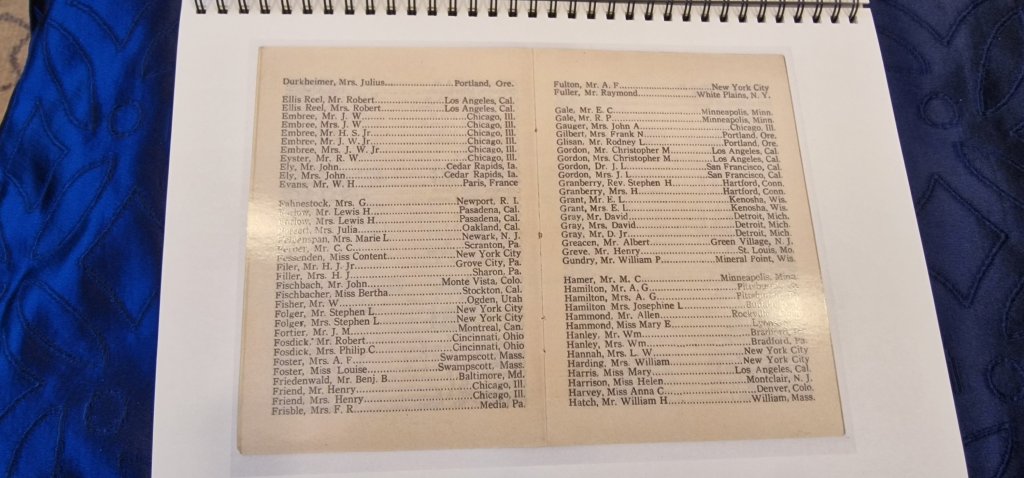 Durkheimer, Mrs. Julius..............Portland, Ore.
Ellis Reel, Mr. Robert..............Los Angeles, Cal.
Ellis Reel, Mrs. Robert..............Los Angeles, Cal.
Embree, Mr. J. W..............Chicago, Ill.
Embree, Mrs. J. W..............Chicago, Ill.
Embree, Mr. H. S. Jr..............Chicago, Ill.
Embree, Mr. J. W. Jr..............Chicago, Ill.
Embree, Mrs. J. W. Jr..............Chicago, Ill.
Eyster, Mr. R. W..............Chicago, Ill.
Ely, Mr. John..............Cedar Rapids, Ia.
Ely, Mrs. John..............Cedar Rapids, Ia.
Evans, Mr. W. H..............Paris, France
Fahnestock, Mrs. G..............Newport, R. I.
Mr. Lewis H..............Pasadena, Cal.
Mrs. Lewis H..............Pasadena, Cal.
Mrs. Julia..............Oakland, Cal.
Mrs. Marie L..............Newark, N. J.
Mr. C. C..............Scranton, Pa.
Fessenden, Miss Content..............New York City
Filer, Mr. H. J. Jr..............Grove City, Pa.
Filler, Mrs. H. J..............Sharon, Pa.
Fischbach, Mr. John..............Monte Vista, Colo.
Fischbacher, Miss Bertha..............Stockton, Cal.
Fisher, Mr. W..............Ogden, Utah
Folger, Mr. Stephen L..............New York City
Folger, Mrs. Stephen L..............New York City
Fortier, Mr. J. M..............Montreal, Can.
Fosdick, Mr. Robert..............Cincinnati, Ohio
Fosdick, Mrs. Philip C..............Cincinnati, Ohio
Foster, Mrs. A. F..............Swampscott, Mass.
Foster, Miss Louise..............Swampscott, Mass.
Friedenwald, Mr. Benj. B..............Baltimore, Md.
Friend, Mr. Henry..............Chicago, Ill.
Friend, Mrs. Henry..............Chicago, Ill.
Frisble, Mrs. F. R..............Media, Pa.
Fulton, Mr. A. F..............New York City
Fuller, Mr. Raymond..............White Plains, N. Y.
Gale, Mr. E. C..............Minneapolis, Minn.
Gale, Mr. R. P..............Minneapolis, Minn.
Gauger, Mrs. John A..............Chicago, Ill.
Gilbert, Mrs. Frank N..............Portland, Ore.
Glisan, Mr. Rodney L..............Portland, Ore.
Gordon, Mr. Christopher M..............Los Angeles, Cal.
Gordon, Mrs. Christopher M..............Los Angeles, Cal.
Gordon, Dr. J. L..............San Francisco, Cal.
Gordon, Mrs. J. L..............San Francisco, Cal.
Granberry, Rev. Stephen H..............Hartford, Conn.
Granberry, Mrs. H..............Hartford, Conn.
Grant, Mr. E. L..............Kenosha, Wis.
Grant, Mrs. E. L..............Kenosha, Wis.
Gray, Mr. David..............Detroit, Mich.
Gray, Mrs. David..............Detroit, Mich.
Gray, Mr. D. Jr..............Detroit, Mich.
Greacen, Mr. Albert..............Green Village, N. J.
Greve, Mr. Henry..............St. Louis, Mo.
Gundry, Mr. William P..............Mineral Point, Wis.
Hamer, Mr. M. C..............Minneapolis, Minn.
Hamilton, Mr. A. G..............
Hamilton, Mrs. A. G..............
Hamilton Mrs. Josephine L..............
Hammond, Mr. Allen..............
Hammond, Miss Mary E..............
Hanley, Mr. Wm..............
Hanley, Mrs. Wm..............Bradford, Pa.
Hannah, Mrs. L. W..............New York City
Harding, Mrs. William..............New York City
Harris, Miss Mary..............Los Angeles, Cal.
Harrison, Miss Helen..............Montclair, N. J.
Harvey, Miss Anna C..............Denver, Colo.
Hatch, Mr. William H..............William, Mass.